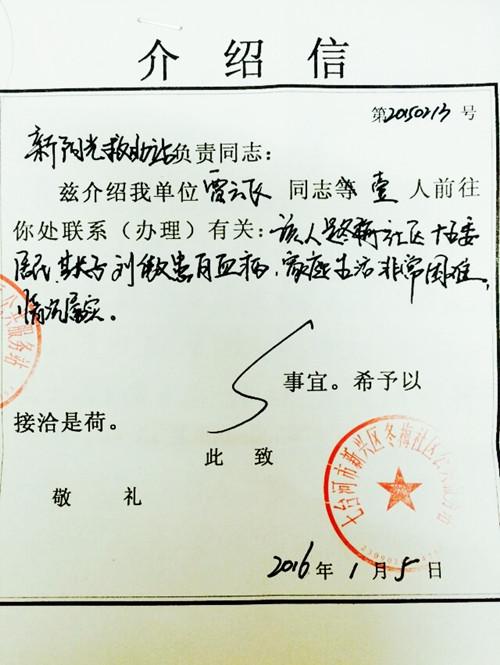 介绍信
第20150213号
新阳光救助站负责同志：
兹介绍我单位 贾云飞 同志等 壹 人前往
你处联系（办理）有关：该人是冬梅社区十五委
居民，其长子刘微患白血病，家庭生活非常困难，
情况属实。
事宜。希予以
接洽是荷。
此致
敬礼
七台河市新兴区冬梅社区公共服务站
公共服务站
2016年1月5日